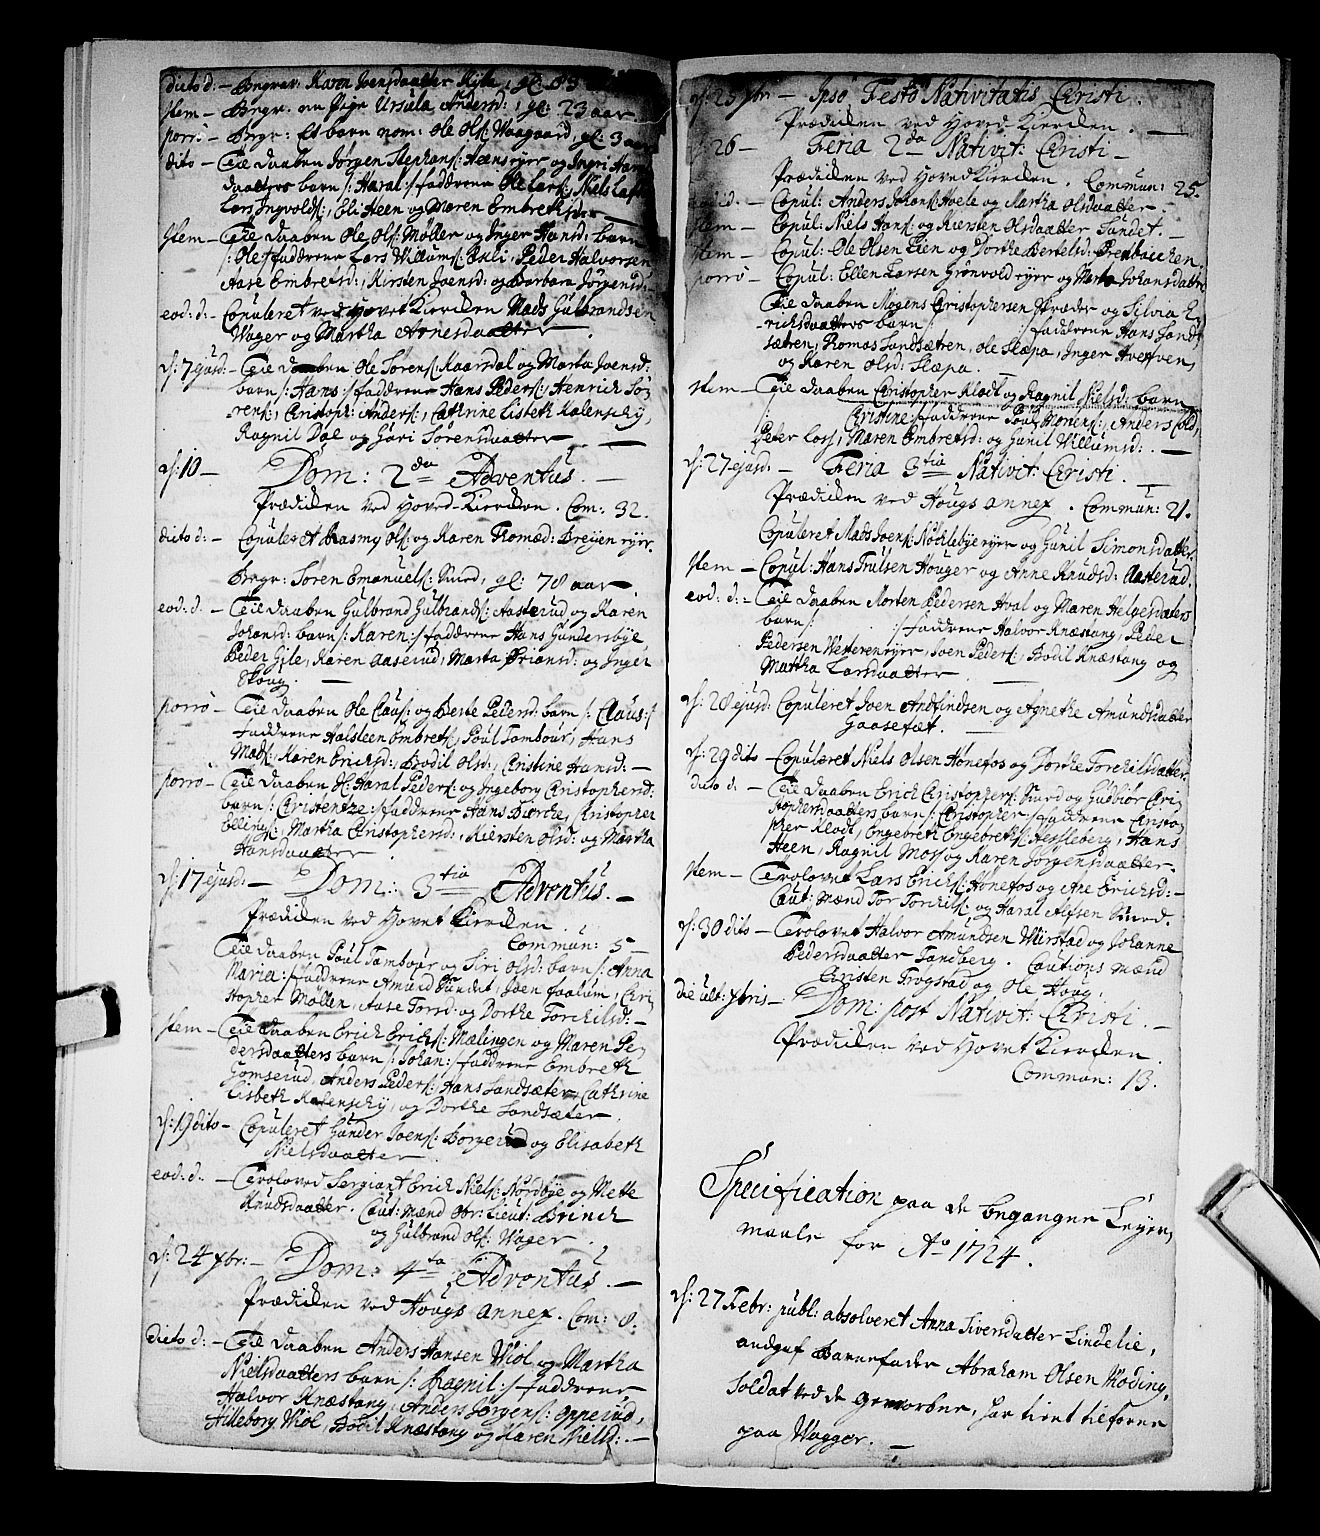 dito d: – Begrav: Karen Joensdaatter
Item – Begr. en Pige Ursula Andersd:, gl: 23 aar
porro – Begr: Et barn nom: Ole Ols: Waagaard, gl: 3 aar
dito – Til daaben Jørgen Stephans: Heens ryer og Ingri
daatters barn /: Haral :/ faddrene Ole Lars:, Niels
Lars Ingvolds:, Eli Heen og Maren Embrethsder –
Item – Til daaben Ole Ols: Møller og Inger Hansd: barn
/: Ole :/ faddrene Lars Willums: Eskli, Peder Halvorsen
Aase Embretsd:, Kirsten Joensd: og Barbara Jørgensd:
eod: d: – Copuleret ved Hovet Kierchen Mads Gulbrandsen
Wager og Martha Arnesdaatter
d: 7 ejusd: – Til daaben Ole Sørens: Kaarsdal og Marta Joensd:
barn /: Hans :/ faddrene Hans Peders:, Henrich Sø-
rens:, Christoph: Anders:, Cathrine Lisbeth Kalensky,
Ragnil Dal og Guri Sørensdaatter
d: 10 – Dom: 2da Adventus. –
Prædichen ved Hoved-Kierchen. Com: 32.
dito d: – Copuleret Rasmy Ols: og Karen Tomæd: Breyen ryer.
Begr: Søren Emanuels: Smed, gl: 70 aar
eod. d. – Til daaben Gulbrand Gulbrands: Aasterud og Karen
Johansd: barn /: Karen :/ faddrene Hans Gundersbye
Peder Gile, Karen Aaserud, Marta Briansd: og Inger
Skoug. –
porro – Til daaben Ole Claus: og Berte Pedersd: barn /: Claus :/
Faddrene Halsteen Embrets:, Poul Tambour, Hans
Mads:, Karen Ericksd:, Bodil Olsd:, Christine Hansd: –
porro – Til daaben H: Haral Peders: og Ingeborg Christophersd:
barn /: Christentze :/ faddrene Hans Diærche, Christopher
Ellings:, Martha Christophersd:, Kiersten Olsd: og Martha
Hansdaatter
d: 17 ejusd: – Dom: 3tia Adventus. –
Prædichen ved Hovet Kierchen.
Commun: 5 –
Til daaben Poul Tambour og Siri Olsd: barn /: Anna
Maria :/ faddrene Amund Sundet, Joen Faalum, Chri-
stopher Møllen, Aase Torsd: og Dorthe Torchilsd: –
Item – Til daaben Erich Erichs: Mælingen og Maren Pe-
dersdaatters barn /: Johan :/ faddrene Embreth
Gomserud, Anders Peders: Hans Landsæter, Cathrine
Lisbeth Kalensky, og Dorthe Landsæter.
d: 19 dito – Copuleret Gunder Joens: Borgerud og Elisabeth
Nielsdaatter.
eod: d: – Troloved Sergiant Erich Niels: Nordbye og Mette
Knudsdaatter. Caut: mænd Obr: Lieut: Brinch
og Gulbrand Ols: Wager.
d: 24 Xbr: – Dom: 4ta Adventus. –
Prædichen ved Hougs annex. Com: 8.
dito d: – Til daaben Anders Hansen Wiol og Martha
Nielsdaatters barn /: Ragnil :/ faddrene
Halvor Knæstang, Anders Jørgens: Opperud,
Hilleborg Wiol, Bodil Knæstang og Karen Nielsd: –
d: 25 Xbr – Ipso Festo Nativitatis Christi.
Prædichen ved Hoved Kierchen. –
d: 26 – Feria 2da Nativit: Christi –
Prædichen ved Hoved Kierchen. Commun: 25.
eod: d. – Copul: Anders Johans: Hvele og Martha Olsdaatter. –
Item – Copul: Niels Hans: og Kiersten Olsdaatter Sundet. –
Item – Copul: Ole Olsen Eien og Dorthe Bertelsd: Brenbachen.
porrò – Copul: Ellen Larsen Grønvold ryer og Marta Johansdatter
Til daaben Mogens Christophersen Skræder og Silvia E-
richsdaatters barn /: :/ faddrene Hans Land-
sætren, Tomas Landsætren, Ole Skæpa, Inger Hveffven,
og Karen Olsd: Skæpa.
Item – Til daaben Christopher Klodt og Ragnil Nielsd: barn
/: Christine :/ faddrene Poul Honens:, Anders Cold,
Peter Loss, Maren Embretsd: og Gunil Willumsd: –
d: 27 ejusd: – Feria 3tia Nativit: Christi. –
Prædichen ved Hougs annex. Commun: 21.
Copuleret Mads Joens: Nøchlebye ryer og Gunil Simonsdatter.
Item – Copul: Hans Trulsen Houger og Anne Knudsd: Aasterud.
eod: d: – Til daaben Morten Pedersen Hval og Maren Helgesdatters
barn /: :/ faddrene Halvor Knæstang, Peder
Pedersen Westeren ryer, Joen Peders:, Bodil Knæstang og
Martha Larsdaatter –
d: 28 ejusd: Copuleret Iven Andfindsen og Agnethe Amundsdatter
Gaasefæt. –
d: 29 dito – Copuleret Niels Olsen Hønefos og Dorthe Torchilsdatter.
dito d: – Til daaben Erich Christophers: Smed og Gudbiør Chri-
stophersdaatters barn /: Christopher :/ faddrene Christo-
pher Klodt, Engebreth Engebreths: Hessleberg, Hans
Heen, Ragnil Moss og Karen Jørgensdaatter. –
Item – Trolovet Lars Erichs: Hønefos og Ane Erichsd: –
Caut: Mænd Tor Torchils: og Haral Alfsen Smed.
d: 30 dito – Trolovet Halvor Amundsen Wirstad og Johanne
Pedersdaatter Tandberg. Cautions mænd
Christen Frogstad og Ole Houg.
die ult: Xbris – Dom: post Nativit: Christi. –
Prædichen ved Hovet Kierchen.
Commun: 13.
Specification paa de begangne Leyer-
maale for Ao 1724.
d: 27 Febr: publ: absolveret Anna Siversdatter Lindelie,
audgaf Barnefader Abraham Olsen Moding,
Soldat ved de Geworbne, har tient tilforne
paa Wagger. –